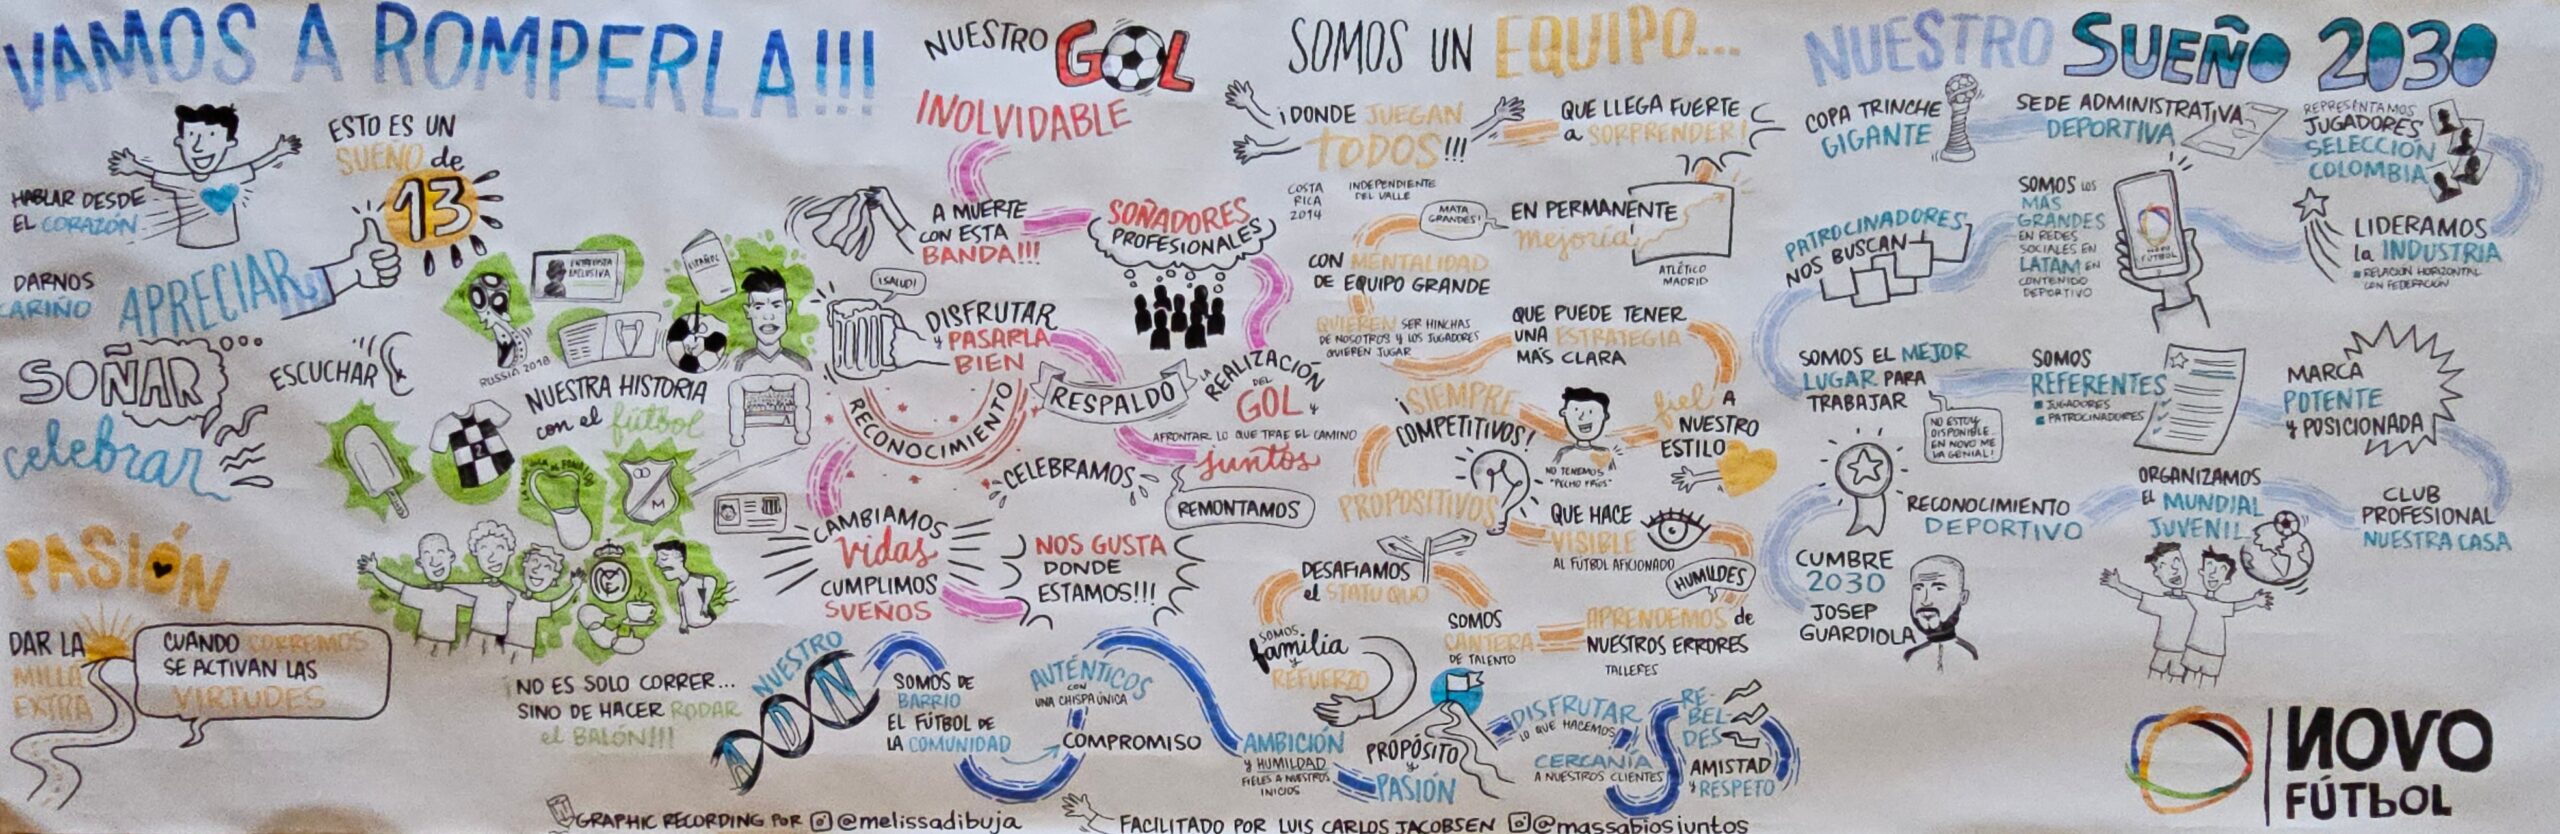 VAMOS A ROMPERLA!!!
HABLAR DESDE
EL CORAZÓN
ESTO ES UN
SUEÑO de
13
DARNOS
CARIÑO
APRECIAR
SOÑAR
ESCUCHAR
celebrar
PASIÓN
DAR LA
MILLA
EXTRA
CUANDO CORREMOS
SE ACTIVAN LAS
VIRTUDES
ENTREVISTA
EXCLUSIVA
ESPAÑOL
RUSSIA 2018
NUESTRA HISTORIA
con el fútbol
2
M
NO ES SOLO CORRER...
SINO DE HACER RODAR
el BALÓN!!!
NUESTRO GOL
INOLVIDABLE
A MUERTE
CON ESTA
BANDA!!!
SOÑADORES
PROFESIONALES
¡SALUD!
DISFRUTAR
y PASARLA
BIEN
RECONOCIMIENTO
RESPALDO
LA REALIZACIÓN
DEL
GOL y
AFRONTAR LO QUE TRAE EL CAMINO
juntos
CELEBRAMOS
REMONTAMOS
CAMBIAMOS
vidas
CUMPLIMOS
SUEÑOS
NOS GUSTA
DONDE
ESTAMOS!!!
SOMOS UN EQUIPO...
¡DONDE JUEGAN
TODOS!!!
QUE LLEGA FUERTE
a SORPRENDER!
COSTA
RICA
2014
INDEPENDIENTE
DEL VALLE
MATA
GRANDES!
EN PERMANENTE
mejoría!
ATLÉTICO
MADRID
CON MENTALIDAD
DE EQUIPO GRANDE
QUIEREN SER HINCHAS
DE NOSOTROS Y LOS JUGADORES
QUIEREN JUGAR
QUE PUEDE TENER
UNA ESTRATEGIA
MÁS CLARA
¡SIEMPRE
COMPETITIVOS!
NO TENEMOS
"PECHO FRÍOS"
fiel A
NUESTRO
ESTILO
PROPOSITIVOS
QUE HACE
VISIBLE
AL FÚTBOL AFICIONADO
DESAFIAMOS
el STATU QUO
HUMILDES
SOMOS
CANTERA
DE TALENTO
APRENDEMOS de
NUESTROS ERRORES
TALLERES
SOMOS
familia
y
REFUERZO
NUESTRO
ADN
SOMOS DE
BARRIO
EL FÚTBOL DE
LA COMUNIDAD
AUTÉNTICOS
CON
UNA CHISPA ÚNICA
COMPROMISO
AMBICIÓN
y HUMILDAD
FIELES A NUESTROS
INICIOS
PROPÓSITO
y
PASIÓN
DISFRUTAR
LO QUE HACEMOS
CERCANÍA
A NUESTROS CLIENTES
RE-
BEL-
DES
AMISTAD
y RESPETO
NUESTRO SUEÑO 2030
COPA TRINCHE
GIGANTE
SEDE ADMINISTRATIVA
DEPORTIVA
REPRESENTAMOS
JUGADORES
SELECCIÓN
COLOMBIA
PATROCINADORES
NOS BUSCAN
SOMOS LOS
MÁS
GRANDES
EN REDES
SOCIALES EN
LATAM EN
CONTENIDO
DEPORTIVO
NOVO
FÚTBOL
LIDERAMOS
la INDUSTRIA
RELACIÓN HORIZONTAL
CON FEDERACIÓN
SOMOS EL MEJOR
LUGAR PARA
TRABAJAR
NO ESTOY
DISPONIBLE...
EN NOVO ME
VA GENIAL!
SOMOS
REFERENTES
JUGADORES
PATROCINADORES
MARCA
POTENTE
y POSICIONADA
RECONOCIMIENTO
DEPORTIVO
ORGANIZAMOS
EL MUNDIAL
JUVENIL
CLUB
PROFESIONAL
NUESTRA CASA
CUMBRE
2030
JOSEP
GUARDIOLA
NOVO
FÚTBOL
GRAPHIC RECORDING POR @melissadibuja
FACILITADO POR LUIS CARLOS JACOBSEN @massabiosjuntos